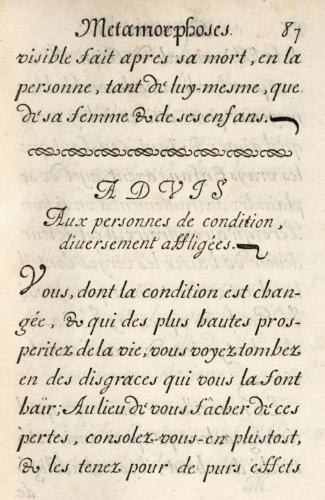 Metamorphoses. 87
visible fait apres sa mort, en la
personne, tant de luy-mesme, que
de sa femme & de ses enfans.
ADVIS
Aux personnes de condition,
diversement affligées.
Vous, dont la condition est chan-
gée, & qui des plus hautes pros-
peritez de la vie, vous voyez tombez
en des disgraces qui vous la font
haïr; Au lieu de vous fâcher de ces
pertes, consolez-vous-en plustost,
& les tenez pour de purs effets